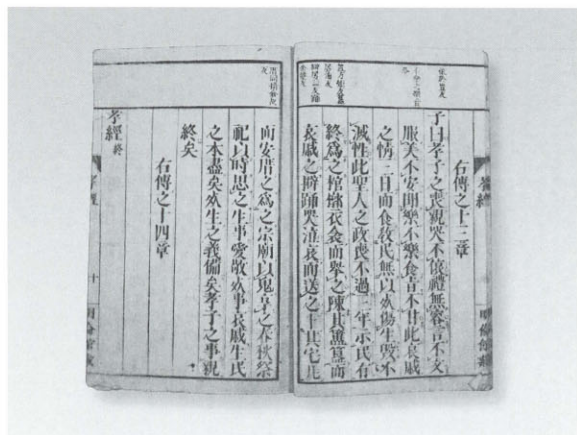 右傳之十三章
子曰孝子之喪親哭不偯禮無容言不文
服美不安聞樂不樂食旨不甘此哀慼
之情三日而食敎民無以死傷生毀不
滅性此聖人之政喪不過三年示民有
終爲之棺槨衣衾而擧之陳其簠簋而
哀慼之擗踊哭泣哀而送之卜其宅兆
而安厝之爲之宗廟以鬼享之春秋祭
祀以時思之生事愛敬死事哀慼生民
之本盡矣死生之義備矣孝子之事親
終矣
右傳之十四章
孝經終
孝經
十
明倫館蔵